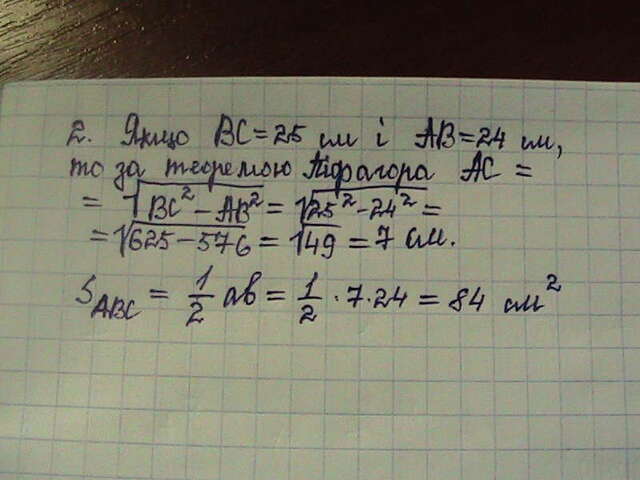 2. Якщо BC=25 см і AB=24 см,
то за теоремою Піфагора AC =
= √BC² - AB² = √25² - 24² =
= √625 - 576 = √49 = 7 см.
S_ABC = 1/2 ab = 1/2 · 7 · 24 = 84 см²